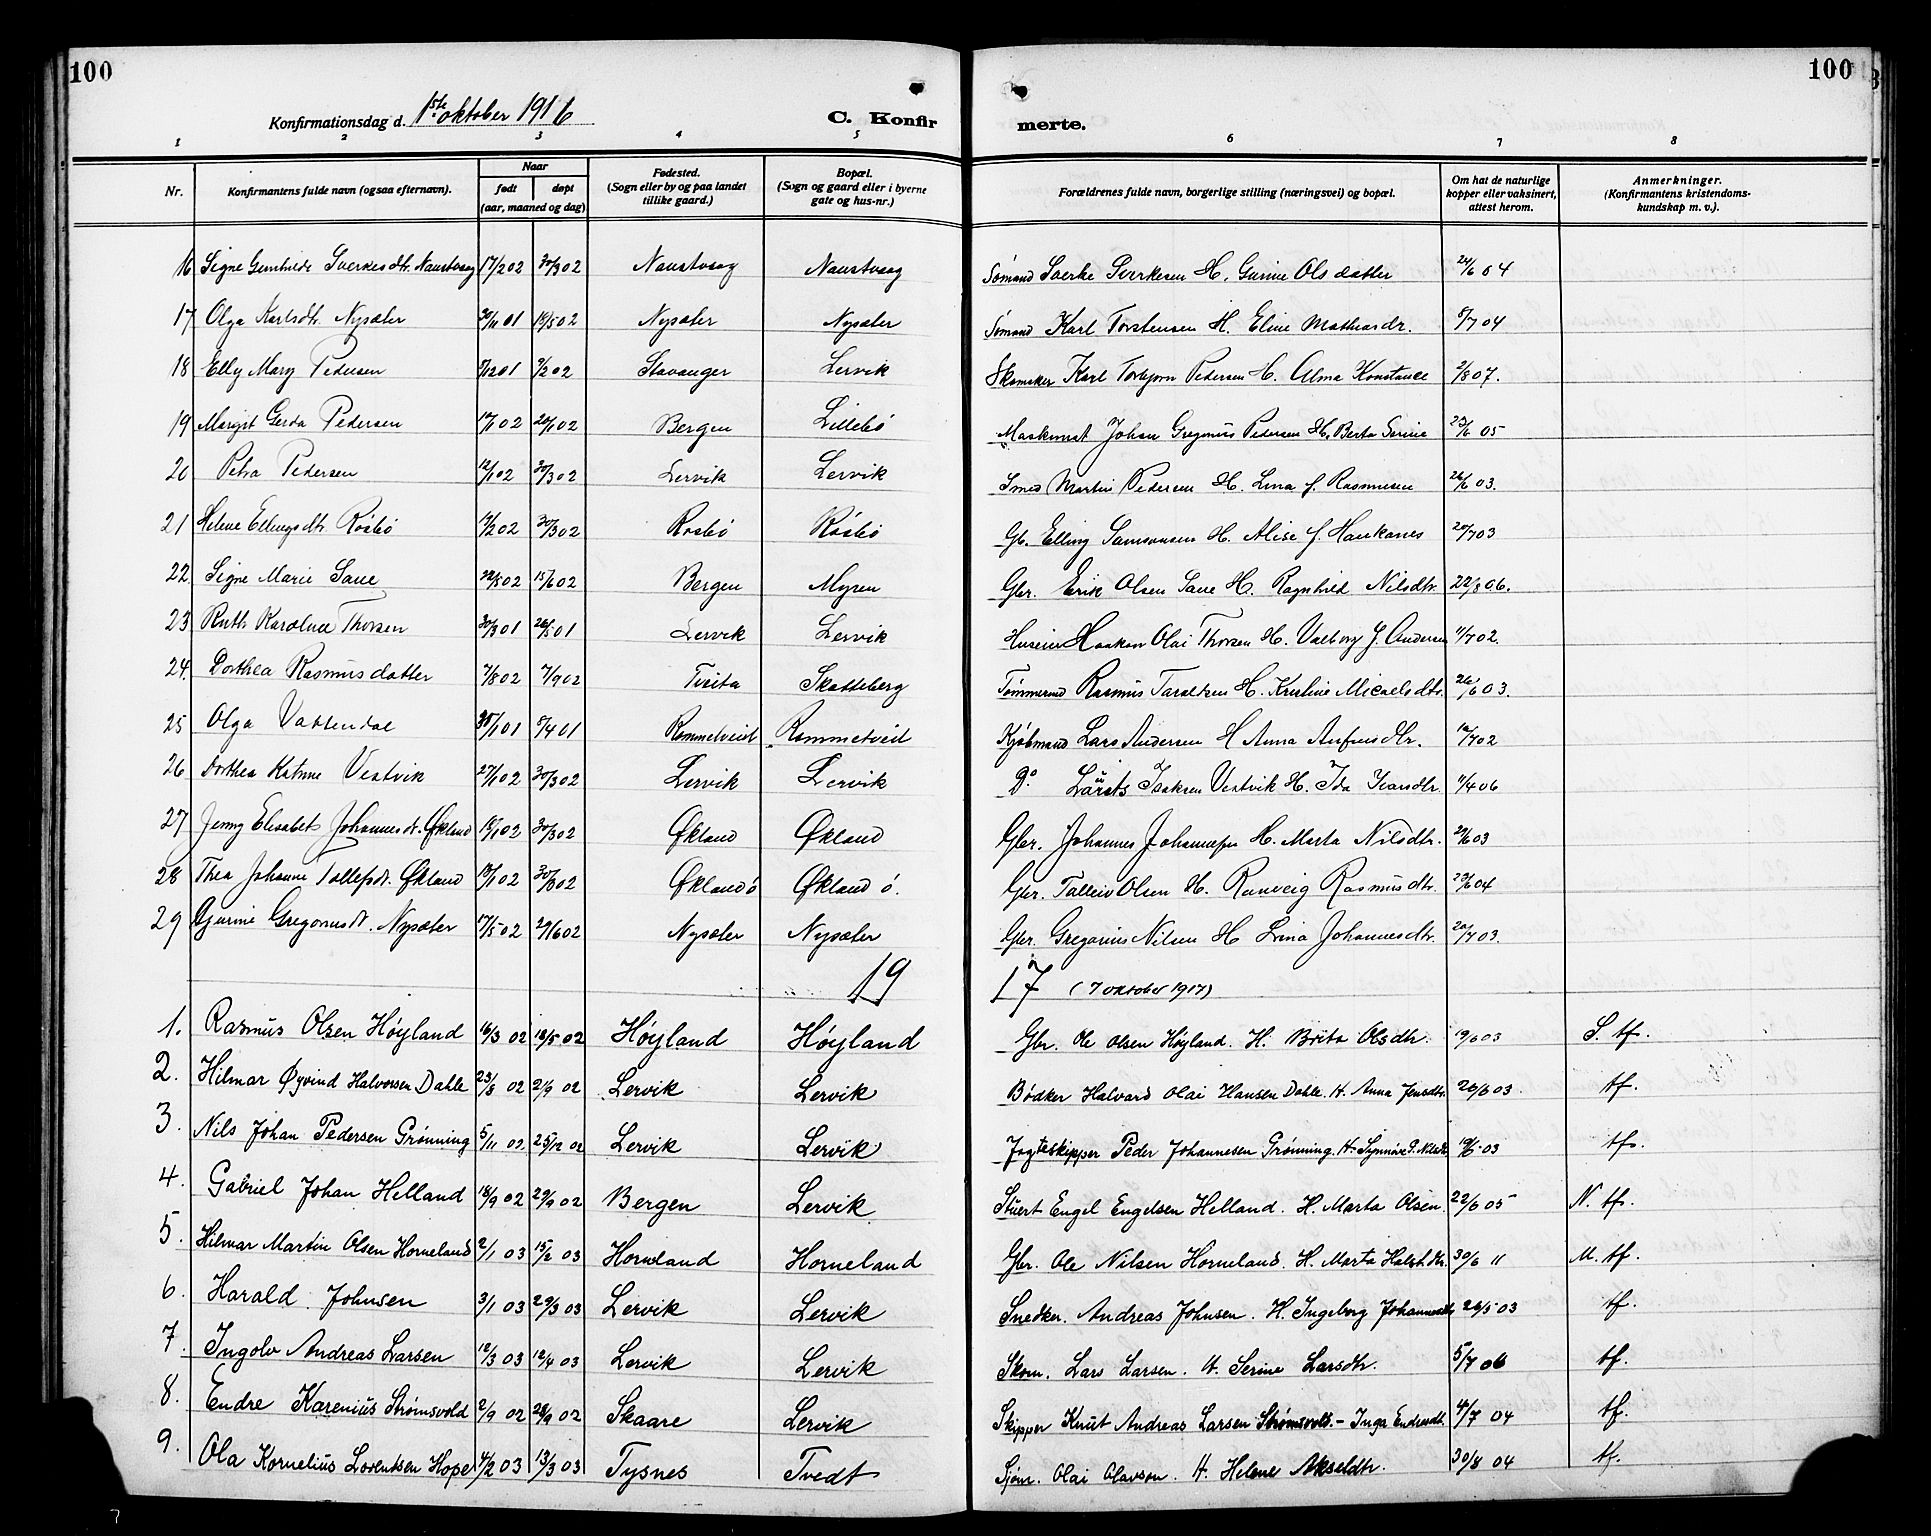 100
100
Konfirmationsdag d. 1ste oktober 1916
C. Konfir
merte.
1 2 3 4 5 6 7 8
Nr.
Konfirmantens fulde navn (ogsaa efternavn).
Naar
født
døpt
(aar, maaned og dag)
Fødested.
(Sogn eller by og paa landet
tillike gaard.)
Bopæl.
(Sogn og gaard eller i byerne
gate og hus-nr.)
Forældrenes fulde navn, borgerlige stilling (næringsvei) og bopæl.
Om hat de naturlige
kopper eller vaksinert,
attest herom.
Anmerkninger.
(Konfirmantens kristendoms-
kundskap m. v.).
16 Signe Gunhilde Sverkesdtr. Naustvaag 17/2 02 30/3 02 Naustvaag Naustvaag Sømand Sverke Sverkesen H. Gurine Olsdatter 24/6 04
17 Olga Karlsdtr. Nysæter 30/11 01 19/5 02 Nysæter Nysæter Sømand Karl Torstensen H. Eline Mathiasdr. 8/7 04
18 Elly Mary Pedersen 7/12 01 9/2 02 Stavanger Lervik Skomaker Karl Torbjørn Pedersen H. Alma Konstance 2/8 07.
19 Margit Gerda Pedersen 17/1 02 20/1 02 Bergen Lillebø Maskinist Johan Gregorius Pedersen H. Berta Serine 23/6 05
20 Petra Pedersen 12/1 02 30/3 02 Lervik Lervik Smed Martin Pedersen H. Lina f. Rasmusen 26/6 03.
21 Helene Ellingsdtr. Røsbø 14/2 02 30/3 02 Røsbø Røsbø Gb. Elling Samsonsen H. Alise f. Haukanes 20/7 03
22 Signe Marie Saue 22/5 02 15/6 02 Bergen Myren Gbr. Erik Olsen Saue H. Ragnhild Nilsdtr. 22/8 06.
23 Ruth Karoline Thorsen 30/3 01 26/5 01 Lervik Lervik Huseier Haakon Olai Thorsen H. Valborg J. Andersen 11/7 02.
24. Dorthea Rasmusdatter 7/8 02 7/9 02 Tveita Skatteberg Tømmermd Rasmus Taraldsen H. Kristine Micaelsdtr. 26/6 03.
25 Olga Vattendal 30/1 01 8/4 01 Rommetveit Rommetveit Kjøbmand Lars Andersen H Anna Anfinsdtr. 10/7 02
26 Dorthea Katrine Vestvik 27/1 02 30/3 02 Lervik Lervik Do Laurits Isaksen Vestvik H. Ida Ivarsdtr. 11/4 06
27 Jenny Elisabet Johannesdt. Økland 18/1 02 30/3 02 Økland Økland Gbr. Johannes Johannesen H. Marta Nilsdtr. 29/6 03
28 Thea Johanne Tollefsdt. Økland 13/1 02 30/3 02 Økland ø Økland ø. Gbr. Talleiv Olsen H. Ranveig Rasmusdtr. 23/6 04
29 Gjurine Gregoriusdt. Nysæter 17/5 02 29/6 02 Nysæter Nysæter Gbr. Gregorius Nilsen H Lina Johannesdtr. 20/7 03.
19 17 (7 oktober 1917)
1. Rasmus Olsen Høyland 16/3 02 18/5 02 Høyland Høyland Gbr. Ole Olsen Høyland. H. Brita Olsdtr. 19/6 03 S. tf.
2. Hilmar Øyvind Halvorsen Dahle 23/8 02 21/9 02 Lervik Lervik Bødker Halvard Olai Hansen Dahle. H. Anna Jensdtr. 26/6 03. tf.
3. Nils Johan Pedersen Grønning 5/11 02. 25/12 02 Lervik Lervik Jagteskipper Peder Johannesen Grønning. H. Synnøve P. Nilsdtr 19/5 03 tf.
4. Gabriel Johan Helland 18/9 02 29/9 02 Bergen Lervik Stuert Engel Engelsen Helland. H. Marta Olsen. 22/6 05 N. tf.
5. Hilmar Martin Olsen Horneland 2/1 03 15/2 03 Horneland Horneland Gbr. Ole Nilsen Horneland. H. Marta Halstdtr. 30/6 11 M. tf.
6. Harald Johnsen 3/1 03 29/3 03 Lervik Lervik Snedker. Andreas Johnsen. H. Ingeborg Johannesdtr 26/5 03 tf.
7. Ingolv Andreas Larsen 12/3 03 12/4 03 Lervik Lervik Skom. Lars Larsen. H. Serine Larsdtr. 5/7 06 tf.
8. Endre Karenius Strømsvold 2/9 02 28/9 02 Skaare Lervik Skipper Knut Andreas Larsen Strømsvold - Inga Endresdt. 4/7 04 tf.
9. Ola Kornelius Lorentsen Hope 4/2 03 13/3 03 Tysnes Tvedt Sjøm. Olai Olavson. H. Helene Akseldtr. 30/8 04 tf.